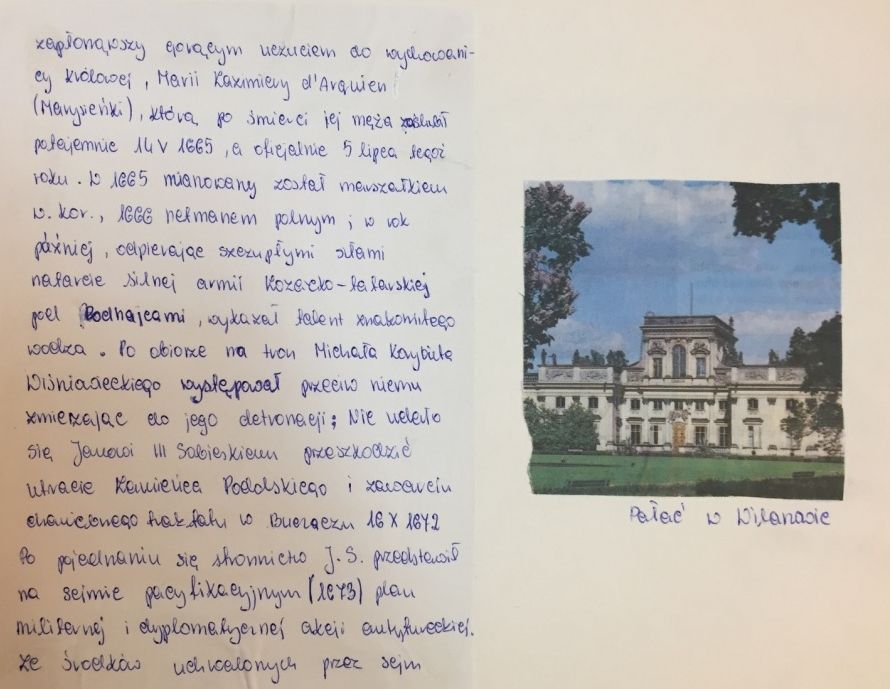 zapłonąwszy gorącym uczuciem do wychowani-
cy królowej, Marii Kazimiery d'Arquien
(Marysieńki), którą po śmierci jej męża zaślubił
potajemnie 14 V 1665, a oficjalnie 5 lipca tegoż
roku. W 1665 mianowany został marszałkiem
w. kor., 1666 hetmanem polnym; w rok
później, odpierając szczupłymi siłami
natarcie silnej armii Kozacko-tatarskiej
pod Podhajcami, wykazał talent znakomitego
wodza. Po obiorze na tron Michała Korybuta
Wiśniowieckiego występował przeciw niemu
zmierzając do jego detronacji; Nie udało
się Janowi III Sobieskiemu przeszkodzić
utracie Kamieńca Podolskiego i zawarciu
chaniebnego traktatu w Buczaczu 16 X 1672
Po pojednaniu się stronnictw J. S. przedstawił
na sejmie pacyfikacyjnym (1673) plan
militarnej i dyplomatycznej akcji antytureckiej.
Ze środków uchwalonych przez sejm
Pałac w Wilanowie